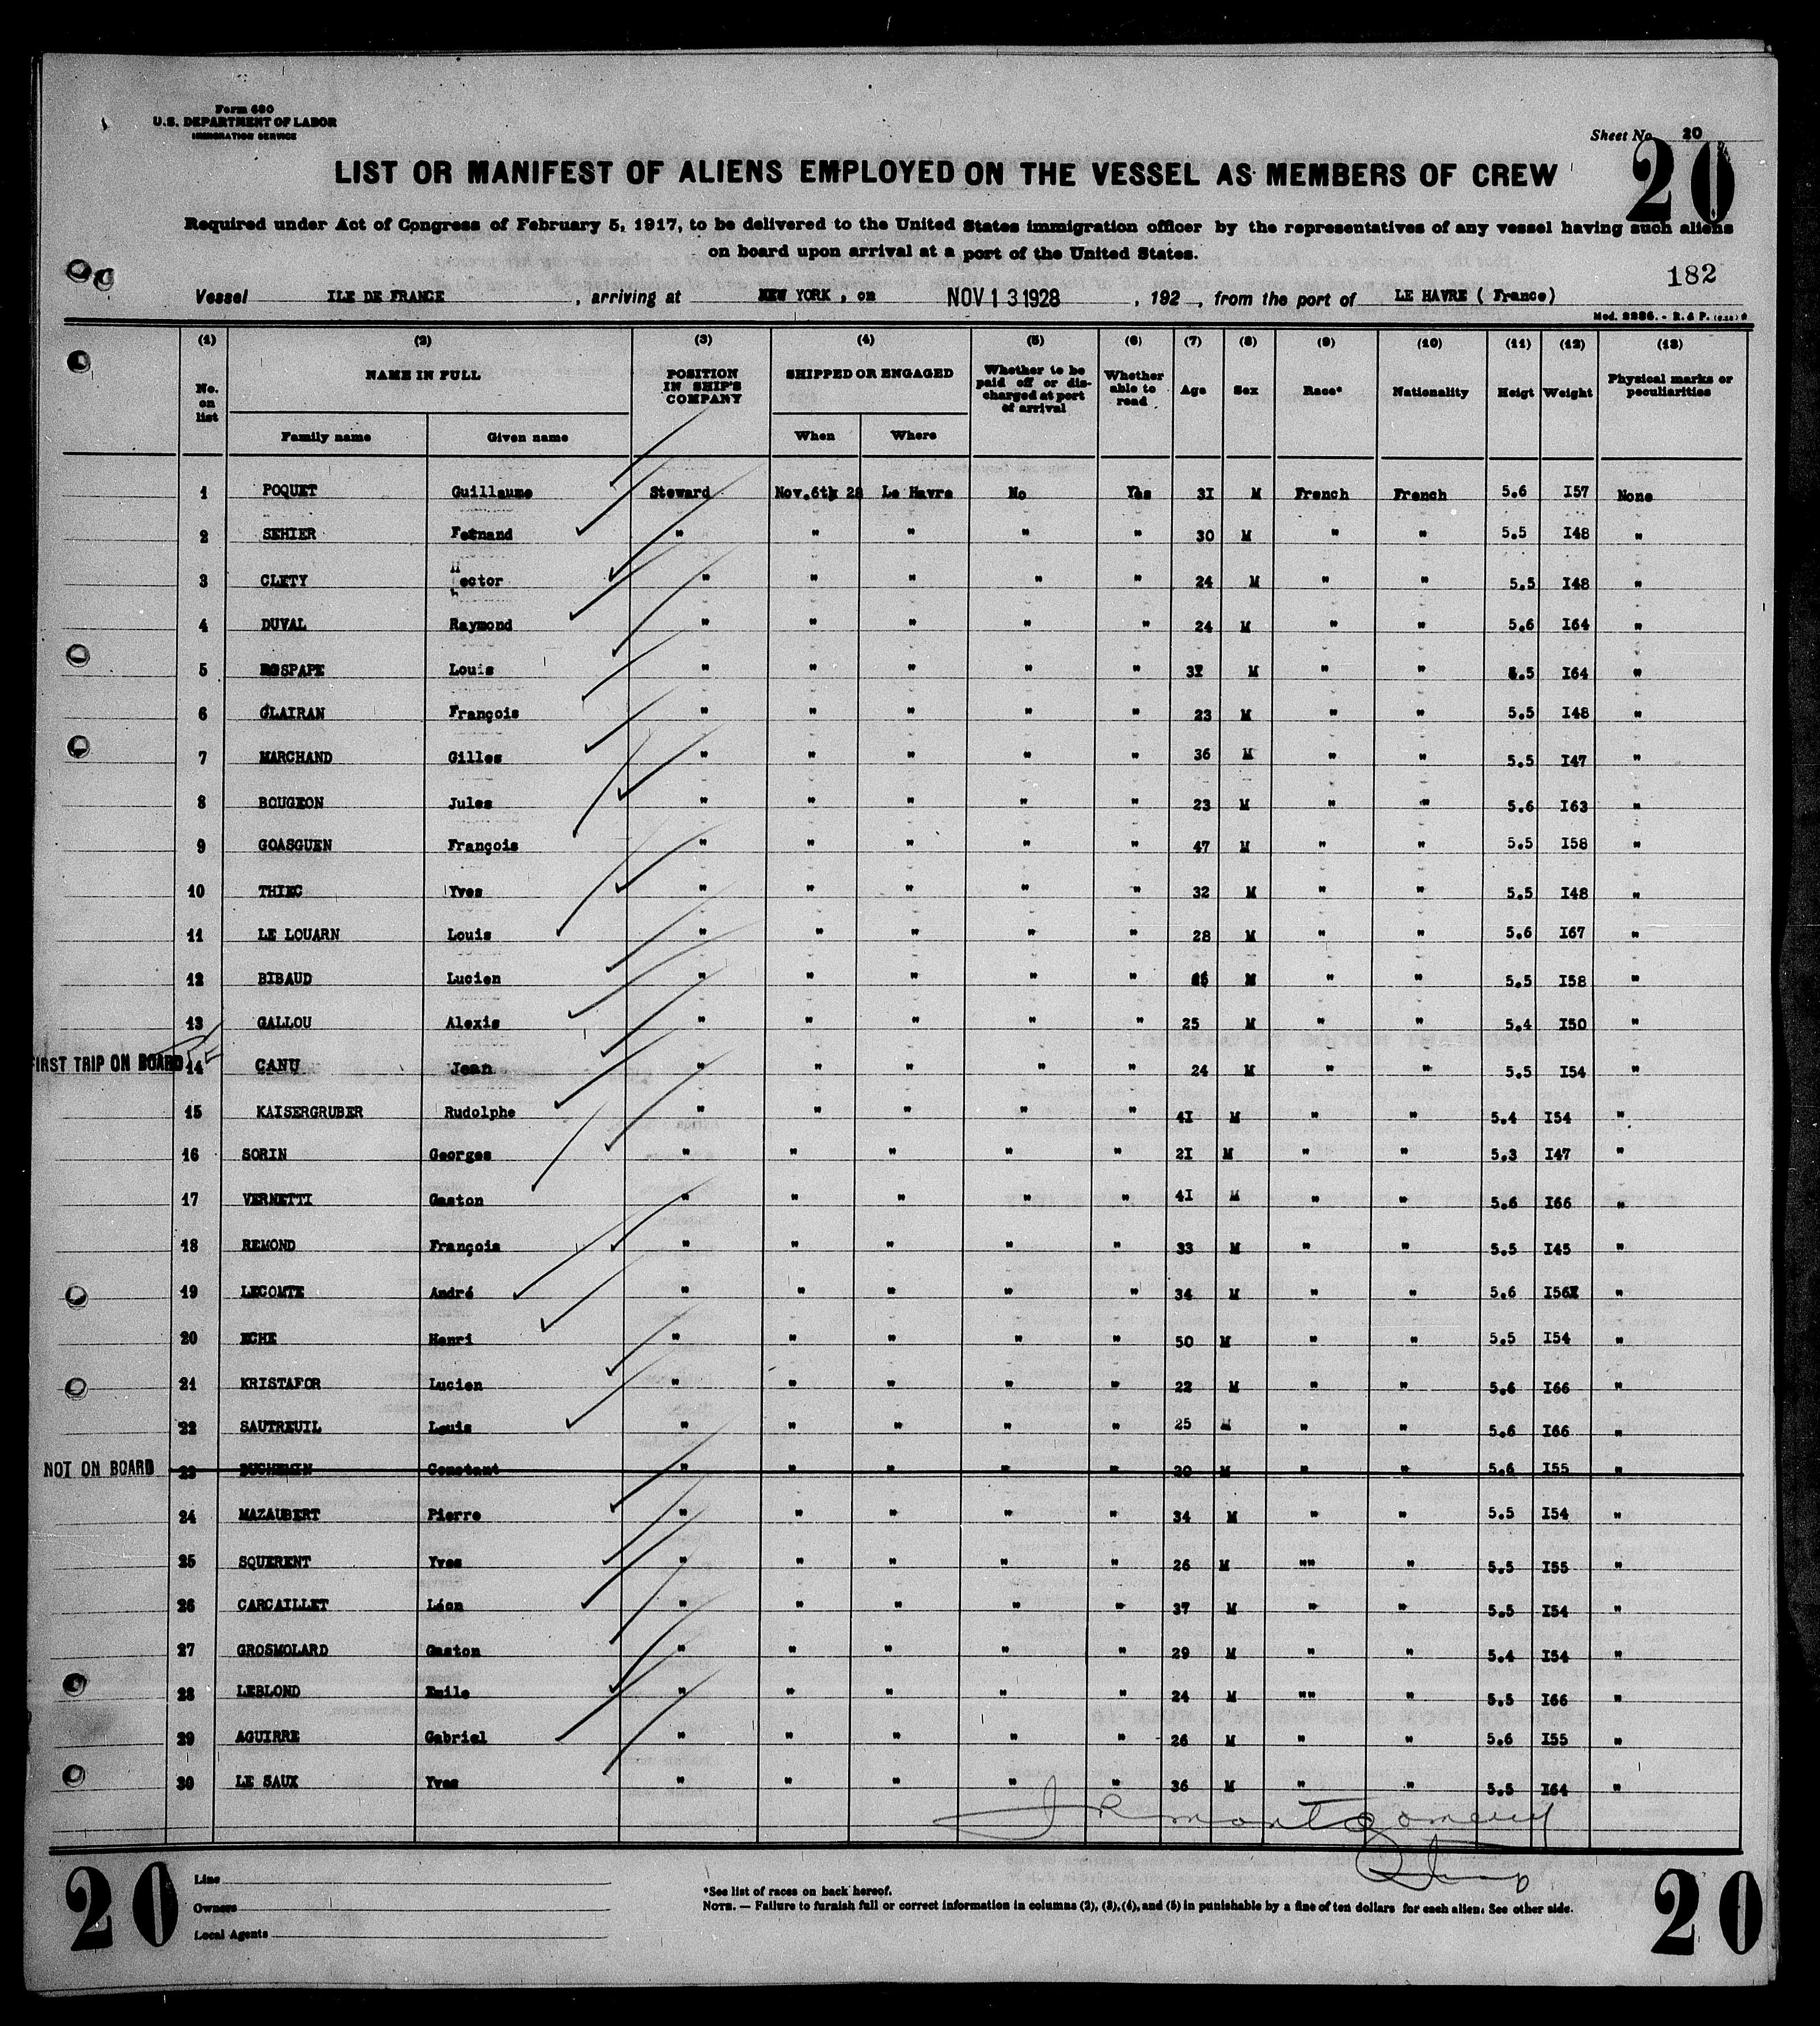 Form 680
U.S. DEPARTMENT OF LABOR
IMMIGRATION SERVICE
Sheet No. 20
20
LIST OR MANIFEST OF ALIENS EMPLOYED ON THE VESSEL AS MEMBERS OF CREW
Required under Act of Congress of February 5, 1917, to be delivered to the United States immigration officer by the representatives of any vessel having such aliens
on board upon arrival at a port of the United States.
182
Vessel ILE DE FRANCE , arriving at NEW YORK , on NOV 13 1928 , 192 , from the port of LE HAVRE ( France)
Mod. 2286. - R. & P.
(1) (2) (3) (4) (5) (6) (7) (8) (9) (10) (11) (12) (13)
No. on list NAME IN FULL POSITION IN SHIP'S COMPANY SHIPPED OR ENGAGED Whether to be paid off or discharged at port of arrival Whether able to read Age Sex Race* Nationality Heigt Weight Physical marks or peculiarities
Family name Given name When Where
1 POQUET Guillaume Steward Nov.6th 28 Le Havre No Yes 3I M French French 5.6 I57 None
2 SEHIER Fernand " " " " " 30 M " " 5.5 I48 "
3 CLETY Hector " " " " " 24 M " " 5.5 I48 "
4 DUVAL Raymond " " " " " 24 M " " 5.6 I64 "
5 ROSPAPE Louis " " " " " M " " 5.5 I64 "
6 CLAIRAN François " " " " " 23 M " " 5.5 I48 "
7 MARCHAND Gilles " " " " " 36 M " " 5.5 I47 "
8 BOUGEON Jules " " " " " 23 M " " 5.6 I63 "
9 GOASGUEN François " " " " " 47 M " " 5.5 I58 "
10 THIEC Yves " " " " " 32 M " " 5.5 I48 "
11 LE LOUARN Louis " " " " " 28 M " " 5.6 I67 "
12 BIBAUD Lucien " " " " " M " " 5.5 I58 "
13 GALLOU Alexis " " " " " 25 M " " 5.4 I50 "
FIRST TRIP ON BOARD 14 CANU Jean " " " " " 24 M " " 5.5 I54 "
15 KAISERGRUBER Rudolphe " " " " " 4I M " " 5.4 I54 "
16 SORIN Georges " " " " " 2I M " " 5.3 I47 "
17 VERNETTI Gaston " " " " " 4I M " " 5.6 I66 "
18 REMOND François " " " " " 33 M " " 5.5 I45 "
19 LECOMTE André " " " " " 34 M " " 5.6 I56 "
20 ECHE Henri " " " " " 50 M " " 5.5 I54 "
21 KRISTAFOR Lucien " " " " " 22 M " " 5.6 I66 "
22 SAUTREUIL Louis " " " " " 25 M " " 5.6 I66 "
NOT ON BOARD 23 DUCHEMIN Constant " " " " " 30 M " " 5.6 I55 "
24 MAZAUBERT Pierre " " " " " 34 M " " 5.5 I54 "
25 SQUERENT Yves " " " " " 26 M "" " 5.5 I55 "
26 CARCAILLET Léon " " " " " 37 M " " 5.5 I54 "
27 GROSMOLARD Gaston " " " " " 29 M " " 5.4 I54 "
28 LEBLOND Emile " " " " " 24 M "" " 5.5 I66 "
29 AGUIRRE Gabriel " " " " " 26 M " " 5.6 I55 "
30 LE SAUX Yves " " " " " 36 M " " 5.5 I64 "
Montgomery
20
Line
Owners
Local Agents
*See list of races on back hereof.
NOTE. — Failure to furnish full or correct information in columns (2), (3), (4), and (5) in punishable by a fine of ten dollars for each alien. See other side.
20